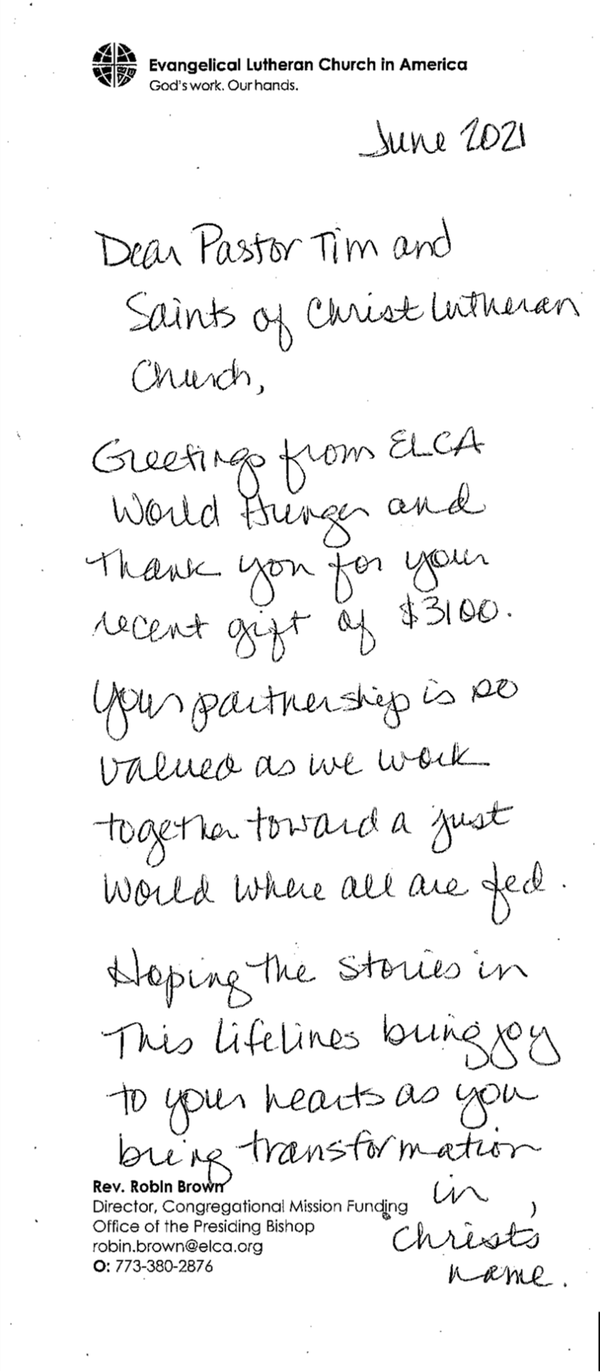 Evangelical Lutheran Church in America
God's work. Our hands.
June 2021
Dear Pastor Tim and
Saints of Christ Lutheran
Church,
Greetings from ELCA
World Hunger and
Thank you for your
recent gift of $3100.
Your partnership is so
valued as we work
together toward a just
world where all are fed.
Hoping the stories in
This Lifelines bring joy
to your hearts as you
bring transformation
in
Christ's
name.
Rev. Robin Brown
Director, Congregational Mission Funding
Office of the Presiding Bishop
robin.brown@elca.org
O: 773-380-2876